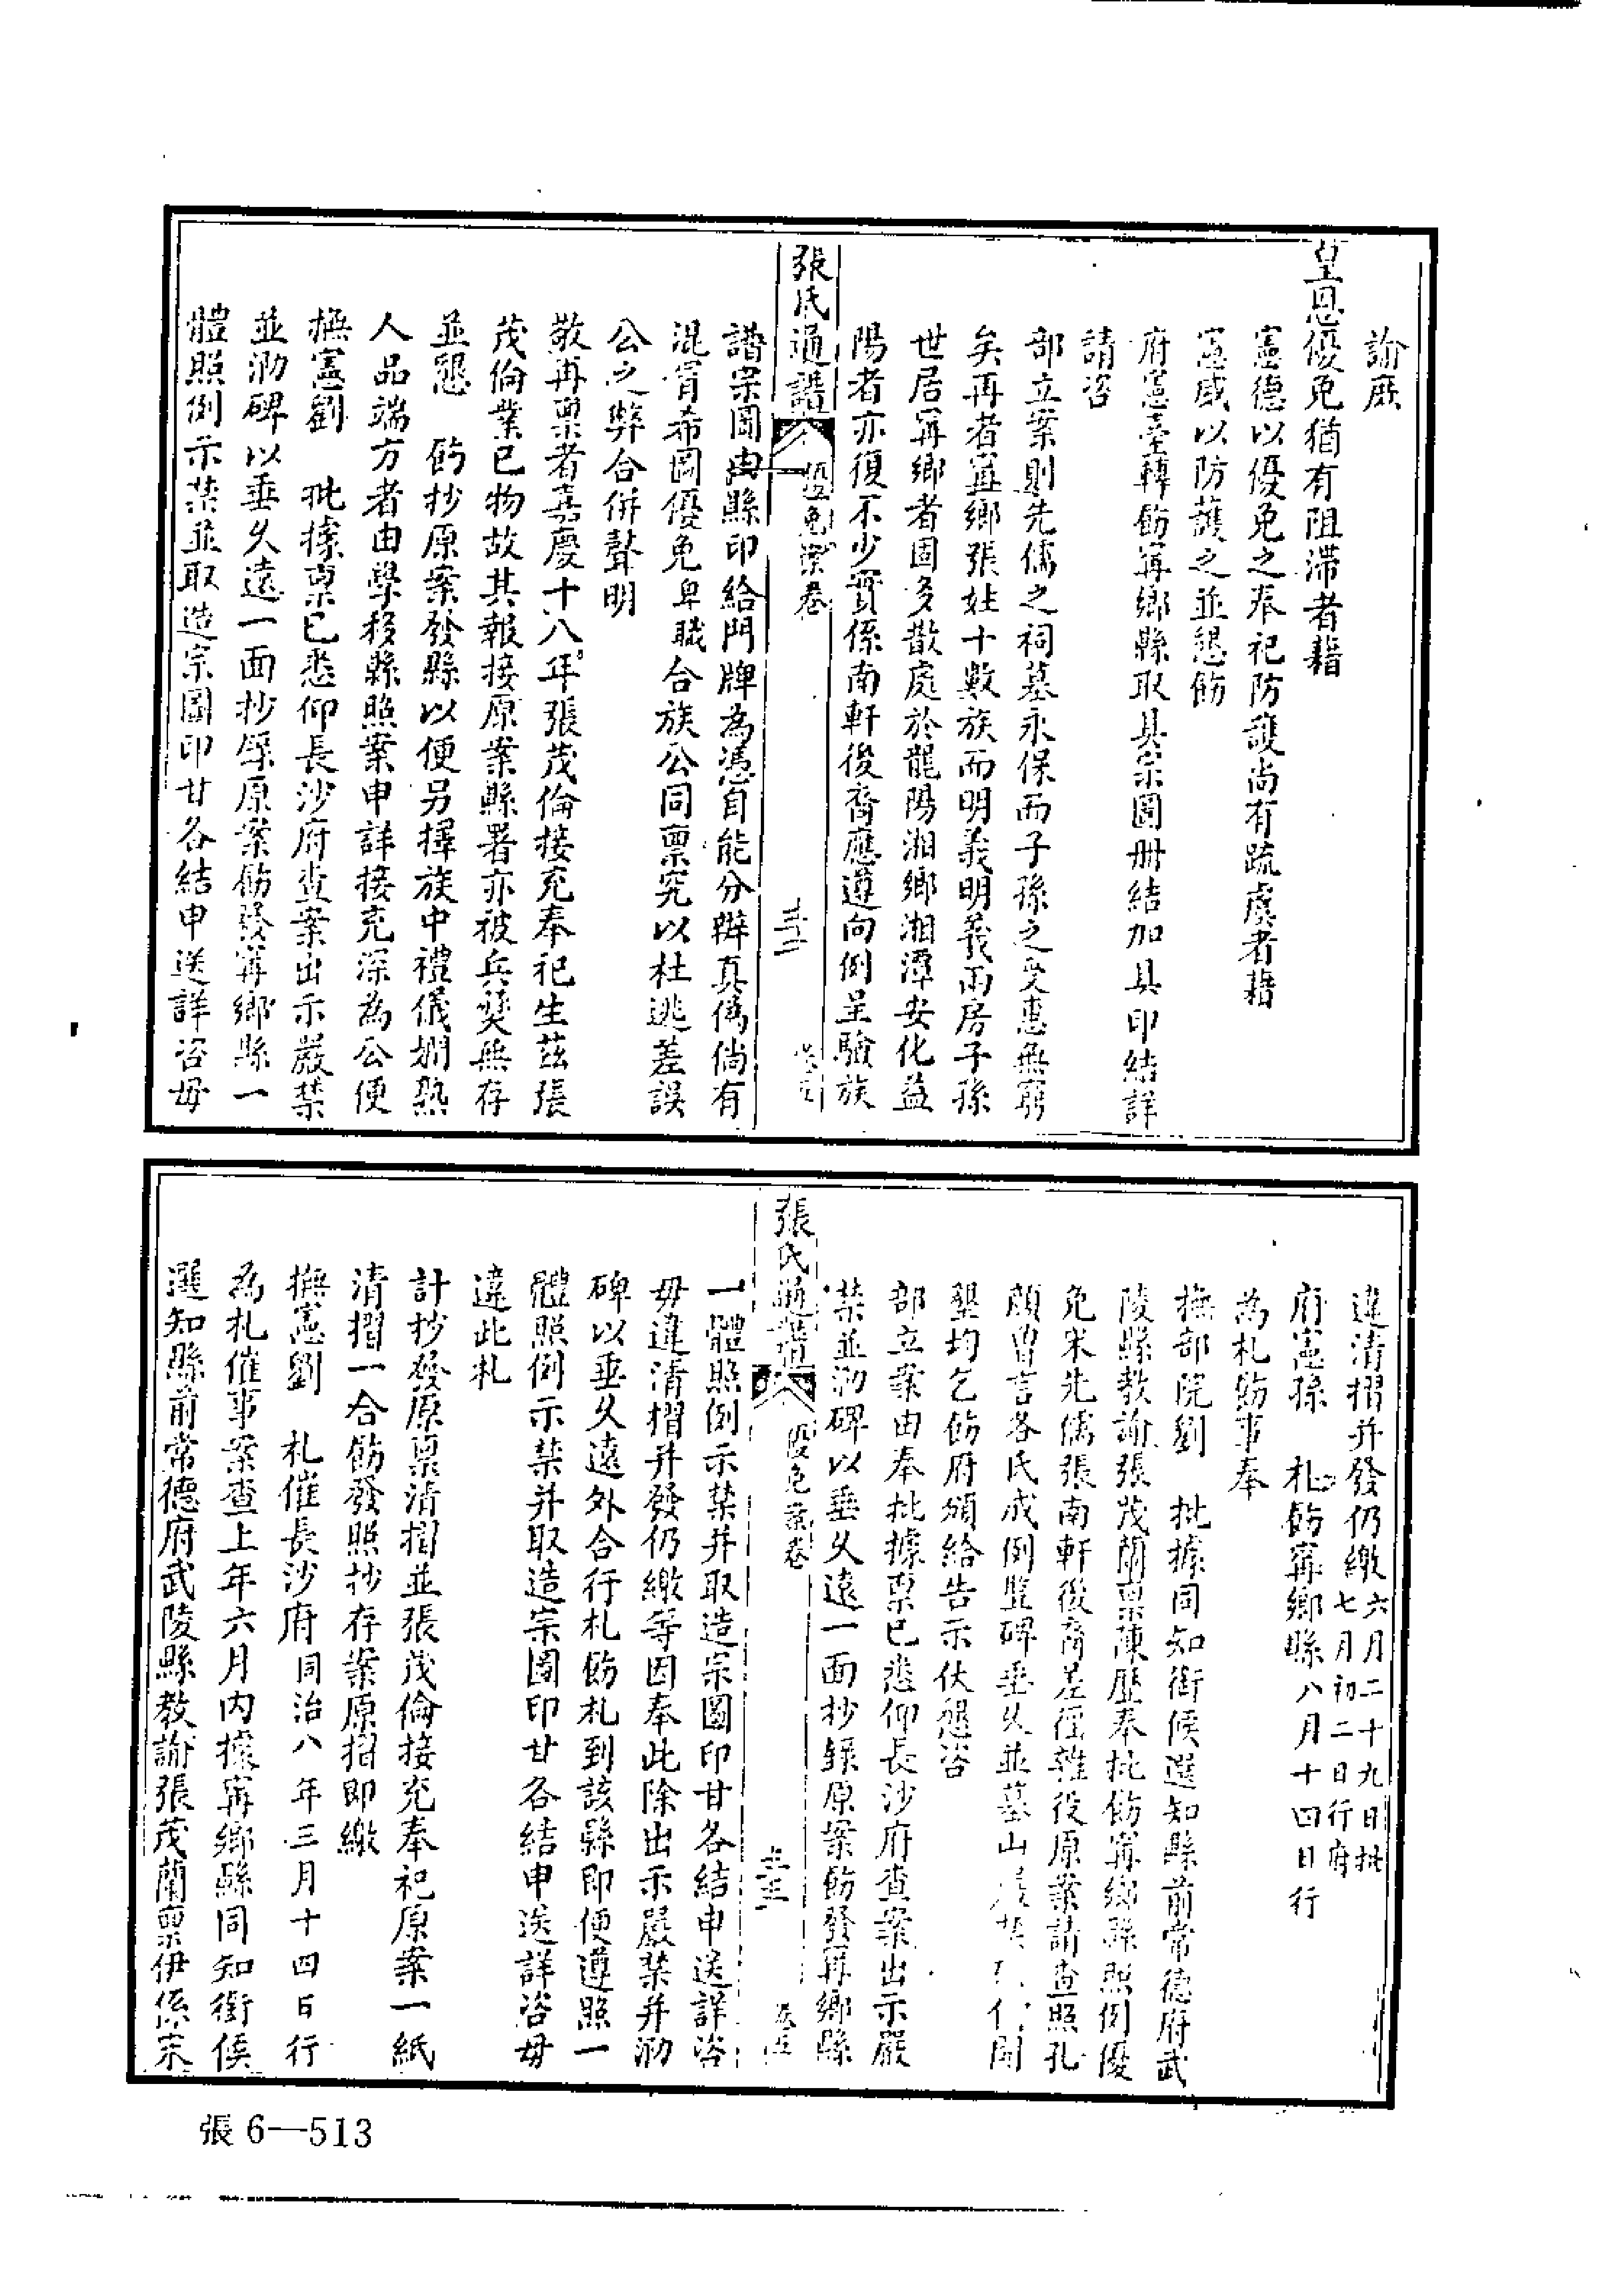 諭庶
皇恩優免猶有阻滯者藉
憲德以優免之奉祀防護尚有疏虞者藉
憲威以防護之並懇飭
府憲臺轉飭甯鄉縣取具宗圖册結加具印結詳
請咨
部立案則先儒之祠墓永保而子孫之受惠無窮
矣再者甯鄉張姓十數族而明義明義兩房子孫
世居甯鄉者固多散處於龍陽湘鄉湘潭安化益
陽者亦復不少實係南軒後裔應遵向例呈驗族
張氏通譜 優免案卷 三十二 卷五
譜宗圖由縣印給門牌為憑自能分辨真偽倘有
混冒希圖優免卑職合族公同禀究以杜逃差誤
公之弊合併聲明
敬再禀者嘉慶十八年張茂倫接充奉祀生茲張
茂倫業已物故其報接原案縣署亦被兵燹無存
並懇 飭抄原案發縣以便另擇族中禮儀嫻熟
人品端方者由學移縣照案申詳接充深為公便
撫憲劉 批據禀已悉仰長沙府查案出示嚴禁
並泐碑以垂久遠一面抄錄原案飭發甯鄉縣一
體照例示禁並取造宗圖印甘各結申送詳咨毋
違清摺并發仍繳六月二十九日批
七月初二日行府
府憲孫 札飭甯鄉縣八月十四日行
為札飭事奉
撫部院劉 批據同知銜候選知縣前常德府武
陵縣教諭張茂蘭禀陳歷奉批飭甯鄉縣照例優
免宋先儒張南軒後裔差徭雜役原案請查照孔
顔曾言各氏成例豎碑垂久並墓山開
墾均乞飭府頒給告示伏懇咨
部立案由奉批據禀已悉仰長沙府查案出示嚴
禁並泐碑以垂久遠一面抄錄原案飭發甯鄉縣
張氏通譜 優免案卷 三十三 卷五
一體照例示禁并取造宗圖印甘各結申送詳咨
毋違清摺并發仍繳等因奉此除出示嚴禁并泐
碑以垂久遠外合行札飭札到該縣即便遵照一
體照例示禁并取造宗圖印甘各結申送詳咨毋
違此札
計抄發原禀清摺並張茂倫接充奉祀原案一紙
清摺一合飭發照抄存案原摺即繳
撫憲劉 札催長沙府同治八年三月十四日行
為札催事案查上年六月內據甯鄉縣同知銜候
選知縣前常德府武陵縣教諭張茂蘭禀伊係宋
張6—513